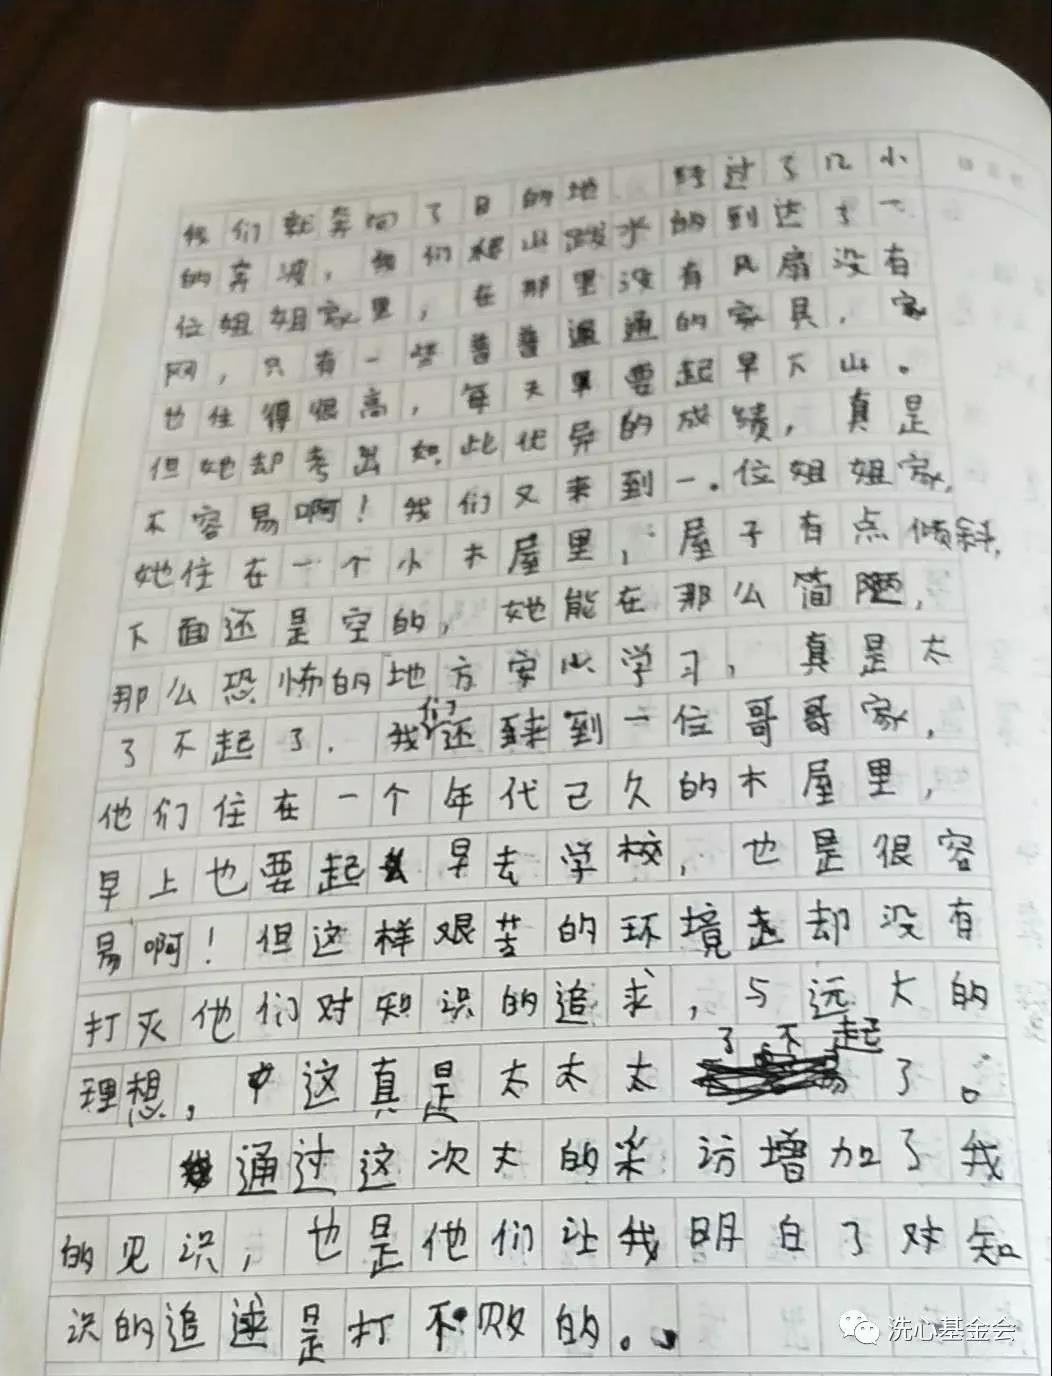 我们就奔向了目的地。经过了几小
的奔波，我们爬山跋水的到达了一
位姐姐家里，在那里没有风扇没有
网，只有一些普普通通的家具，家
也住得很高，每天早要起早下山。
但她却考出如此优异的成绩，真是
不容易啊！我们又来到一位姐姐家，
她住在一个小木屋里，屋子有点倾斜，
下面还是空的，她能在那么简陋，
那么恐怖的地方安心学习，真是太
了不起了。我们还来到一位哥哥家，
他们住在一个年代已久的木屋里，
早上也要起早去学校，也是很容
易啊！但这样艰苦的环境却没有
打灭他们对知识的追求，与远大的
理想，这真是太太太了不起了。
通过这次大的采访增加了我
的见识，也是他们让我明白了对知
识的追逑是打不败的。
洗心基金会